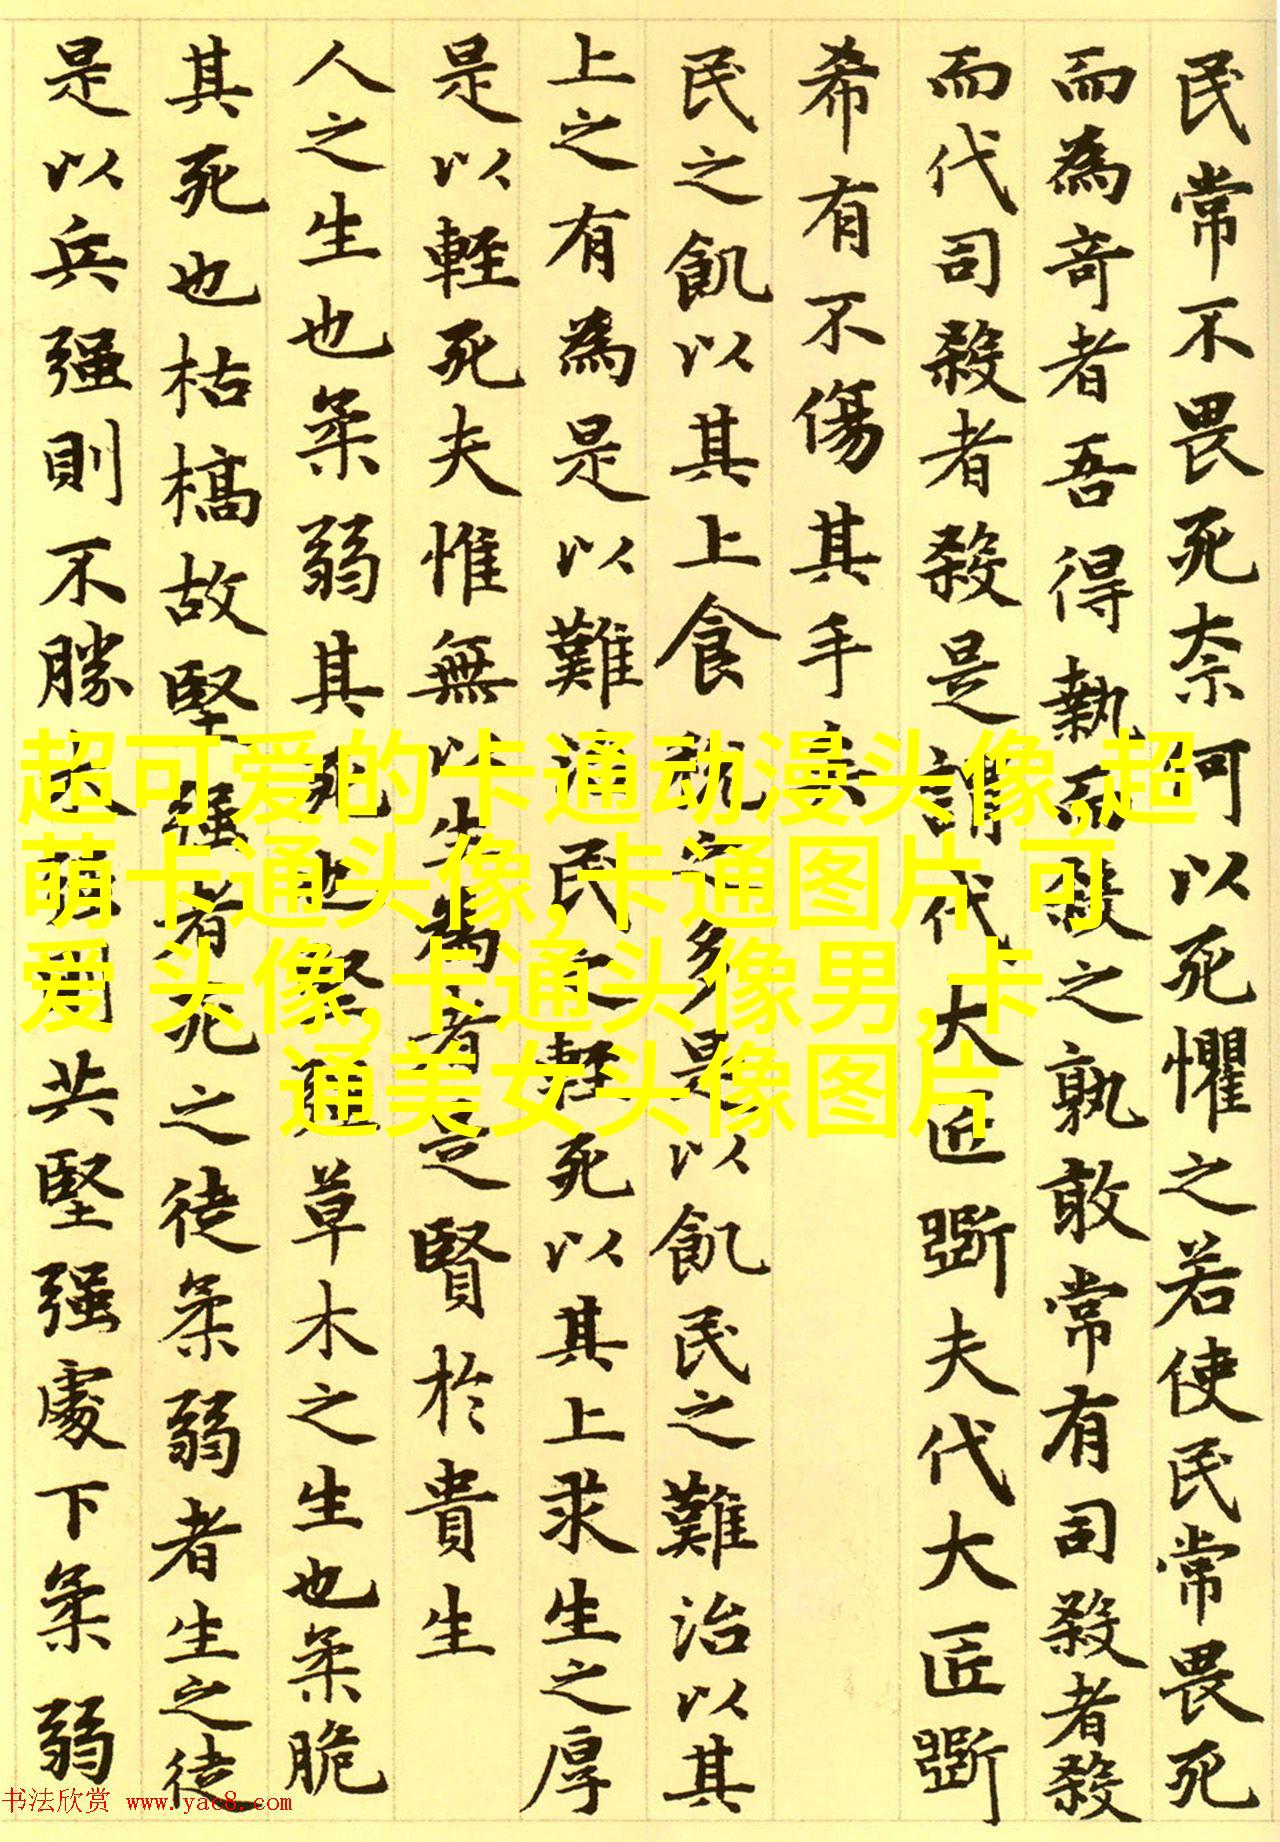 民常不畏死奈何以死懼之若使民常畏死
而為奇者吾得執而殺之孰敢常有司殺者殺
而代司殺者殺是謂代大匠斲夫代大匠斲
希有不傷其手矣
民之飢以其上食稅之多是以飢民之難治以其
上之有為是以難治民之輕死以其上求生之厚
是以輕死夫惟無以生為者是賢於貴生
人之生也柔弱其死也堅强草木之生也柔脆
其死也枯槁故堅强者死之徒柔弱者生之徒
是以兵强則不勝木强則共堅强處下柔弱
超可爱的卡通动漫头像,超
萌卡通头像,卡通图片 可
爱 头像,卡通头像男,卡
通美女头像图片
书法欣赏 www.yac8.com